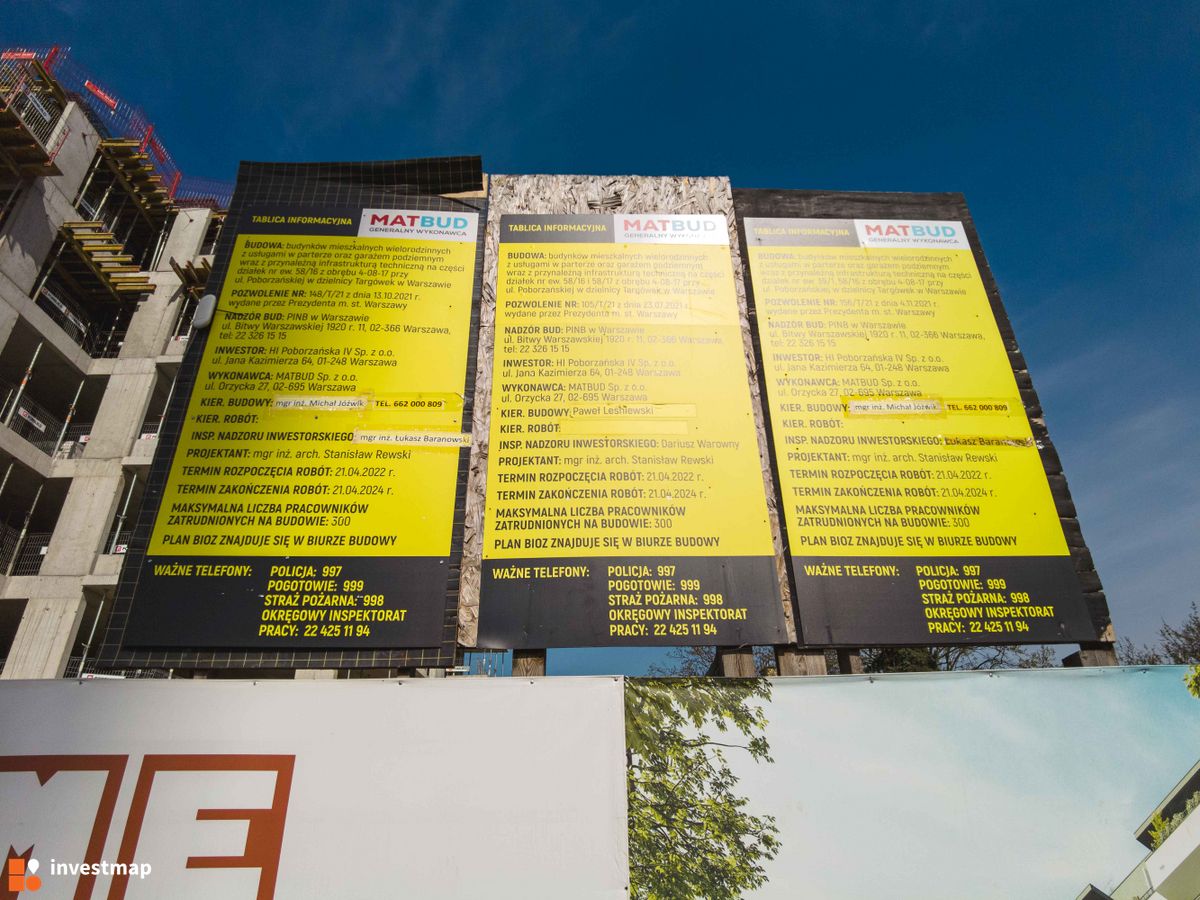 TABLICA INFORMACYJNA
MATBUD
GENERALNY WYKONAWCA
BUDOWA: budynków mieszkalnych wielorodzinnych
z usługami w parterze oraz garażem podziemnym
wraz z przynależną infrastrukturę techniczną na części
działek nr ew. 58/16 z obrębu 4-08-17 przy
ul. Poborzańskiej w dzielnicy Targówek w Warszawie
POZWOLENIE NR: 148/T/21 z dnia 13.10.2021 r.
wydane przez Prezydenta m. st. Warszawy
NADZÓR BUD: PINB w Warszawie
ul. Bitwy Warszawskiej 1920 r. 11, 02-366 Warszawa,
tel: 22 326 15 15
INWESTOR: HI Poborzańska IV Sp. z o.o.
ul. Jana Kazimierza 64, 01-248 Warszawa
WYKONAWCA: MATBUD Sp. z o.o.
ul. Orzycka 27, 02-695 Warszawa
KIER. BUDOWY: mgr inż. Michał Jóźwik TEL. 662 000 809
KIER. ROBÓT:
INSP. NADZORU INWESTORSKIEGO: mgr inż. Łukasz Baranowski
PROJEKTANT: mgr inż. arch. Stanisław Rewski
TERMIN ROZPOCZĘCIA ROBÓT: 21.04.2022 r.
TERMIN ZAKOŃCZENIA ROBÓT: 21.04.2024 r.
MAKSYMALNA LICZBA PRACOWNIKÓW
ZATRUDNIONYCH NA BUDOWIE: 300
PLAN BIOZ ZNAJDUJE SIĘ W BIURZE BUDOWY
WAŻNE TELEFONY: POLICJA: 997
POGOTOWIE: 999
STRAŻ POŻARNA: 998
OKRĘGOWY INSPEKTORAT
PRACY: 22 425 11 94
TABLICA INFORMACYJNA
MATBUD
GENERALNY WYKONAWCA
BUDOWA: budynków mieszkalnych wielorodzinnych
z usługami w parterze oraz garażem podziemnym
wraz z przynależną infrastrukturę techniczną na części
działek nr ew. 58/16 i 58/17 z obrębu 4-08-17 przy
ul. Poborzańskiej w dzielnicy Targówek w Warszawie
POZWOLENIE NR: 105/T/21 z dnia 23.07.2021 r.
wydane przez Prezydenta m. st. Warszawy
NADZÓR BUD: PINB w Warszawie
ul. Bitwy Warszawskiej 1920 r. 11, 02-366 Warszawa,
tel: 22 326 15 15
INWESTOR: HI Poborzańska IV Sp. z o.o.
ul. Jana Kazimierza 64, 01-248 Warszawa
WYKONAWCA: MATBUD Sp. z o.o.
ul. Orzycka 27, 02-695 Warszawa
KIER. BUDOWY Paweł Leśniewski
KIER. ROBÓT:
INSP. NADZORU INWESTORSKIEGO: Dariusz Warowny
PROJEKTANT: mgr inż. arch. Stanisław Rewski
TERMIN ROZPOCZĘCIA ROBÓT: 21.04.2022 r.
TERMIN ZAKOŃCZENIA ROBÓT: 21.04.2024 r.
MAKSYMALNA LICZBA PRACOWNIKÓW
ZATRUDNIONYCH NA BUDOWIE: 300
PLAN BIOZ ZNAJDUJE SIĘ W BIURZE BUDOWY
WAŻNE TELEFONY: POLICJA: 997
POGOTOWIE: 999
STRAŻ POŻARNA: 998
OKRĘGOWY INSPEKTORAT
PRACY: 22 425 11 94
TABLICA INFORMACYJNA
MATBUD
GENERALNY WYKONAWCA
BUDOWA: budynków mieszkalnych wielorodzinnych
z usługami w parterze oraz garażem podziemnym
wraz z przynależną infrastrukturę techniczną na części
działek nr ew. 59/1, 58/16 z obrębu 4-08-17 przy
ul. Poborzańskiej w dzielnicy Targówek w Warszawie
POZWOLENIE NR: 156/T/21 z dnia 4.11.2021 r.
wydane przez Prezydenta m. st. Warszawy
NADZÓR BUD: PINB w Warszawie
ul. Bitwy Warszawskiej 1920 r. 11, 02-366 Warszawa,
tel: 22 326 15 15
INWESTOR: HI Poborzańska IV Sp. z o.o.
ul. Jana Kazimierza 64, 01-248 Warszawa
WYKONAWCA: MATBUD Sp. z o.o.
ul. Orzycka 27, 02-695 Warszawa
KIER. BUDOWY mgr inż. Michał Jóźwik TEL. 662 000 809
KIER. ROBÓT:
INSP. NADZORU INWESTORSKIEGO: Łukasz Baranowski
PROJEKTANT: mgr inż. arch. Stanisław Rewski
TERMIN ROZPOCZĘCIA ROBÓT: 21.04.2022 r.
TERMIN ZAKOŃCZENIA ROBÓT: 21.04.2024 r.
MAKSYMALNA LICZBA PRACOWNIKÓW
ZATRUDNIONYCH NA BUDOWIE: 300
PLAN BIOZ ZNAJDUJE SIĘ W BIURZE BUDOWY
WAŻNE TELEFONY: POLICJA: 997
POGOTOWIE: 999
STRAŻ POŻARNA: 998
OKRĘGOWY INSPEKTORAT
PRACY: 22 425 11 94
ME
investmap